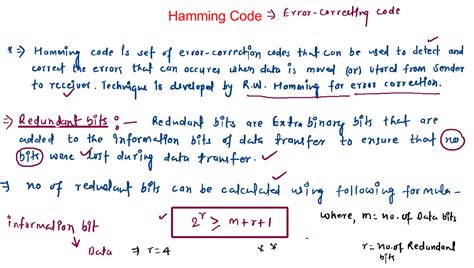 Hamming Code => Error-correcting code
* => Hamming code is set of error-correction codes that can be used to detect and
correct the errors that can occures when data is moved (or) stored from sender
to receiver. Technique is developed by R.W. Hamming for error correction.
=> Redundant bits :- Redundant bits are Extra binary bits that are
added to the information bits of data transfer to ensure that no
bits were lost during data transfer.
=> no of redudant bits can be calculated using following formula-
2^r ≥ m+r+1 where, m= no. of Data bits
information bit
Data => r=4 * * r= no. of Redundant
bits